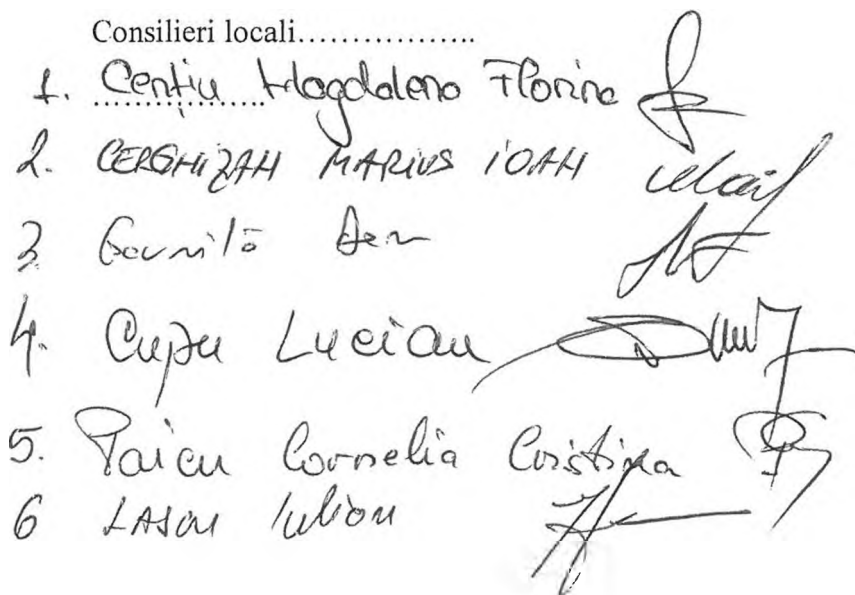 Consilieri locali.................
1. Cențiu Magdalena Florina
2. CERGHIZAN MARIUS IOAN
3
4. Cupu Lucian
5. Paicu Cornelia Cristina
6 LASCU Iulian